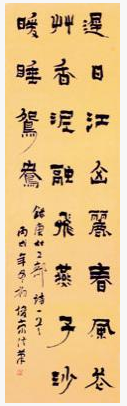 遲日江山麗春風花
艸香泥融飛燕子沙
暖睡鴛鴦
錄唐杜工部詩一首
丙戌年冬